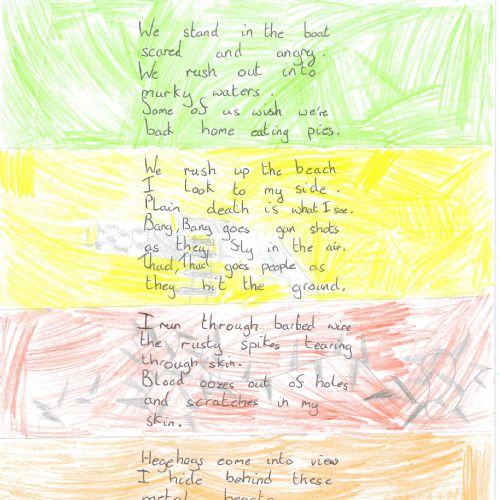 We stand in the boat
scared and angry.
We rush out into
murky waters.
Some of us wish we're
back home eating pies.
We rush up the beach
I look to my side.
Plain death is what I see.
Bang, Bang goes gun shots
as they fly in the air.
Thud, Thud goes people as
they hit the ground.
I run through barbed wire
the rusty spikes tearing
through skin.
Blood oozes out of holes
and scratches in my
skin.
Hegehogs come into view
I hide behind these
metal beasts